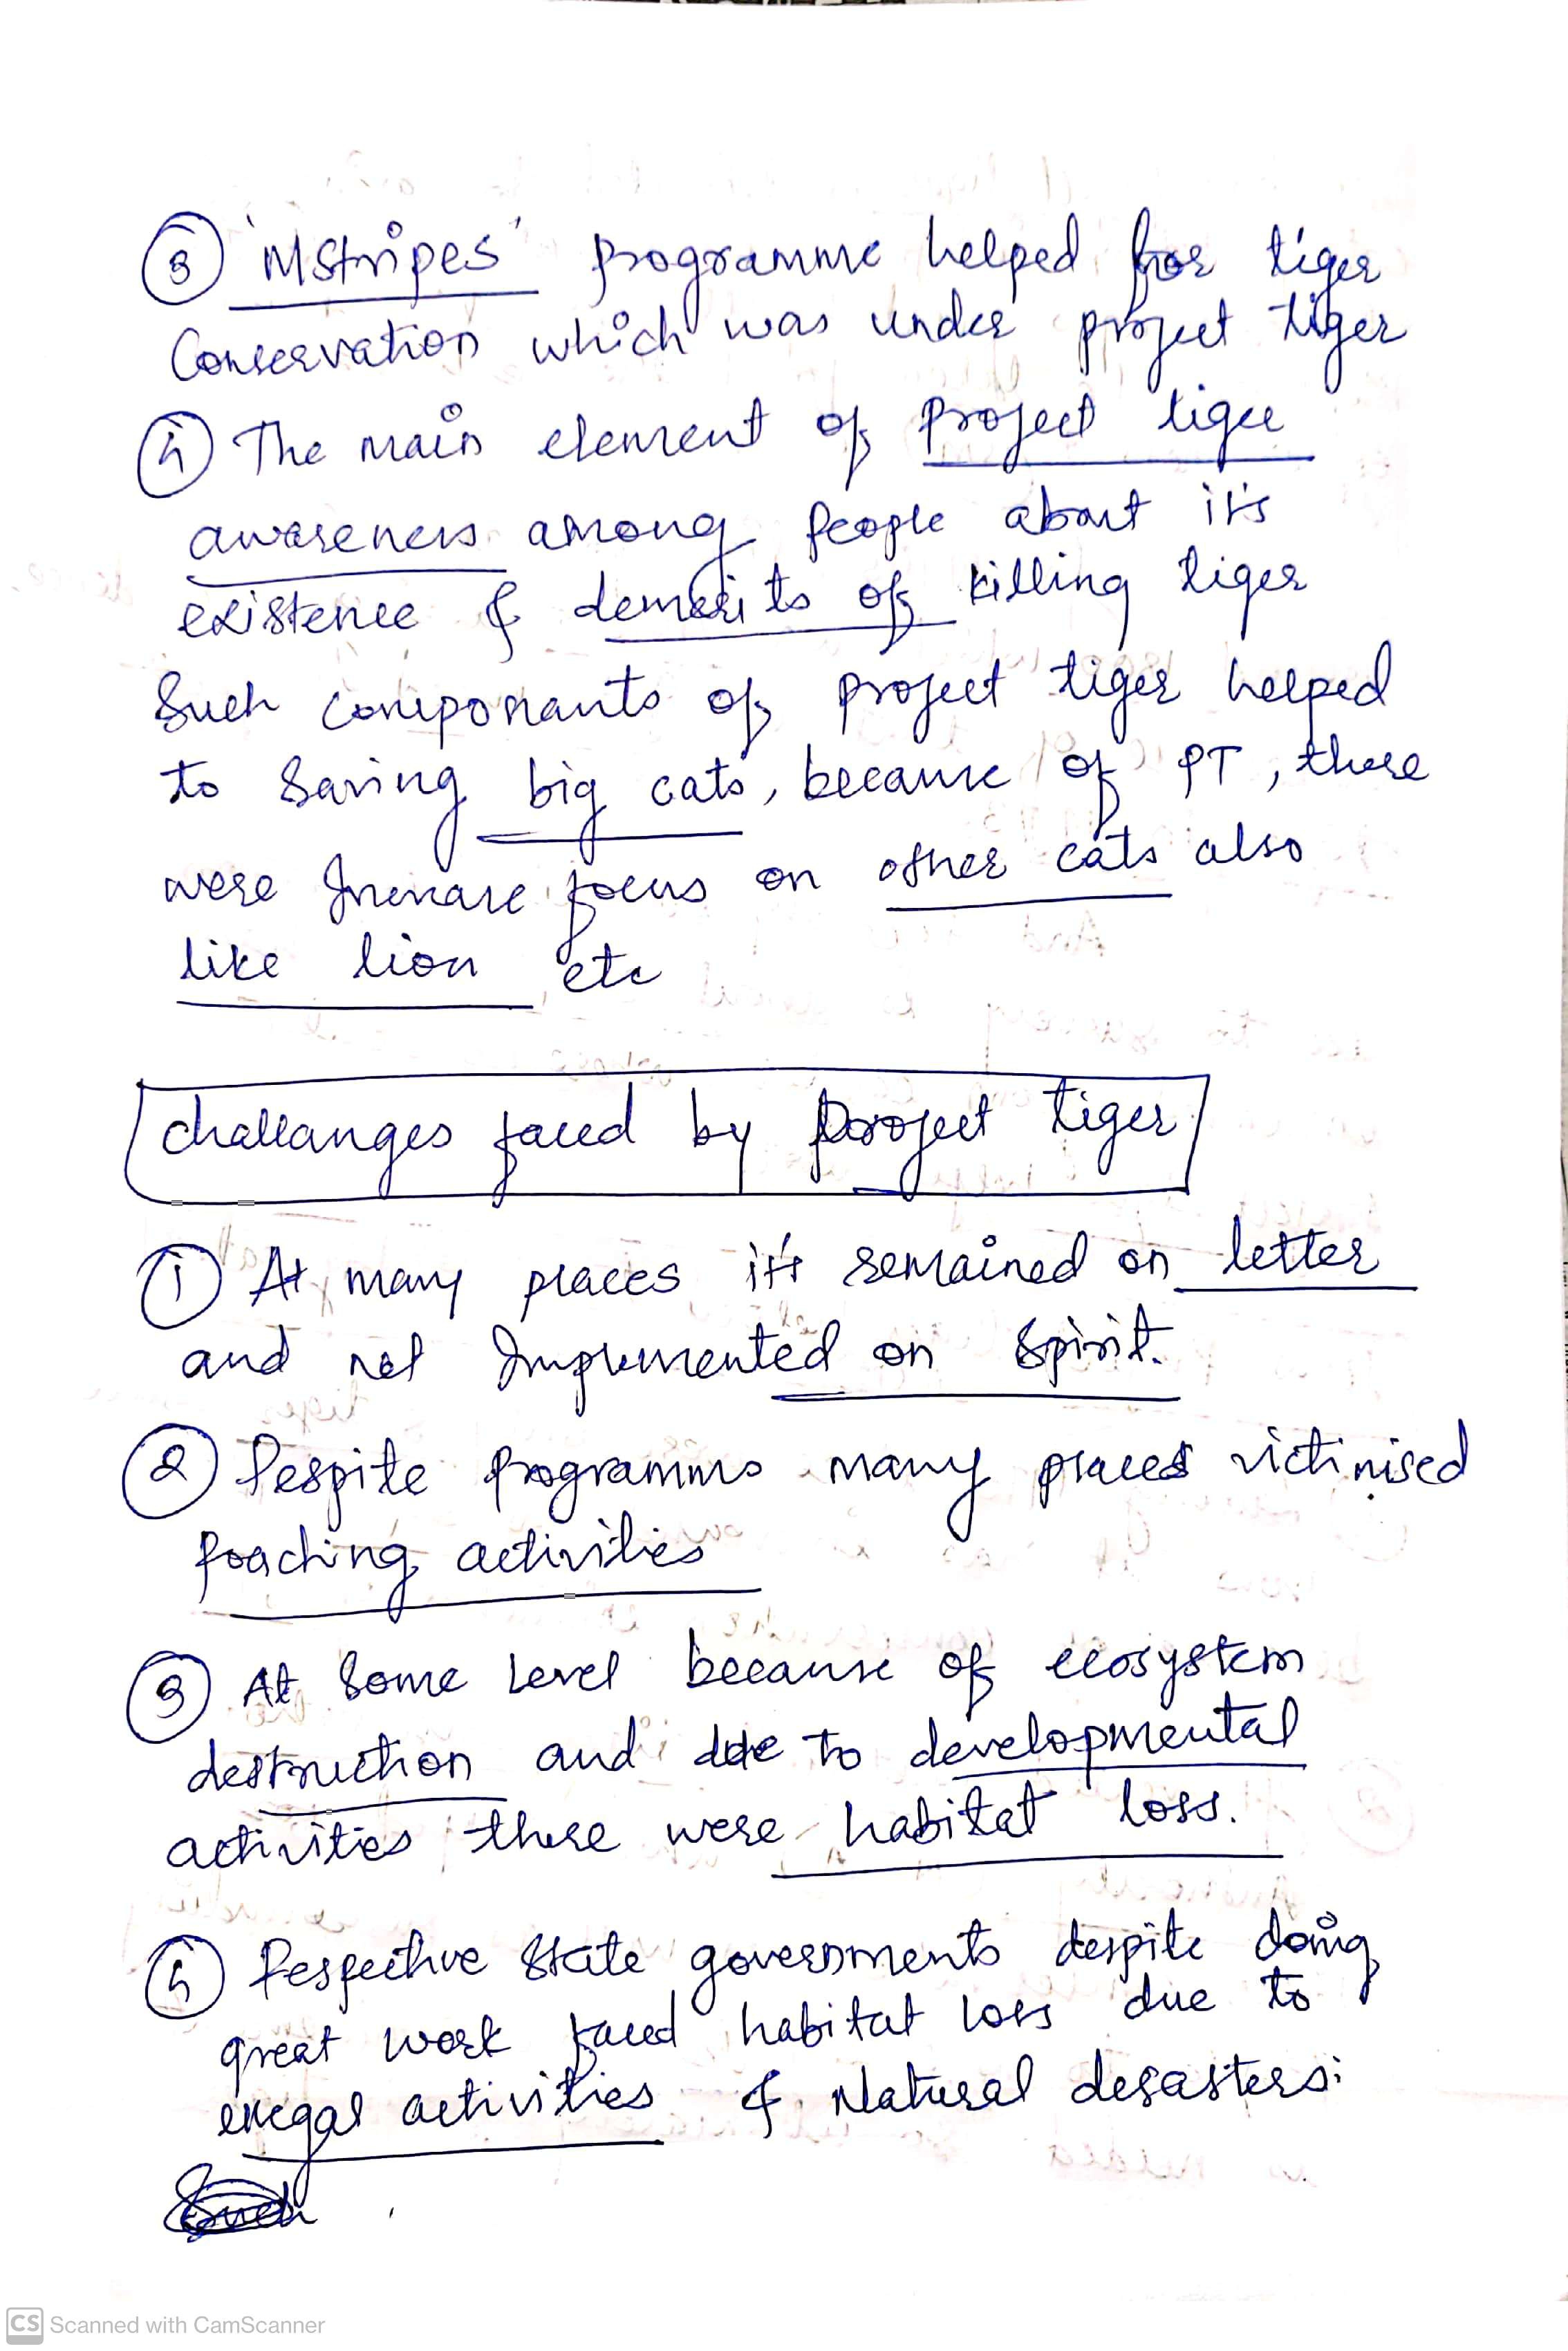 ③ 'MStripes' programme helped for tiger
Conservation which was under project tiger
④ The main element of Project tiger
awareness among people about it's
existence & demerits of killing tiger
Such componants of project tiger helped
to saving big cats, because of PT, there
were Increase focus on other cats also
like lion etc
challanges faced by Project tiger
① At many places it's remained on letter
and not Implemented on spirit.
② Despite programms many places victimised
poaching activities
③ At some level because of ecosystem
destruction and due to developmental
activities there were habitat loss.
④ Respective State governments despite doing
great work faced habitat loss due to
illegal activities & Natural desasters.
CS Scanned with CamScanner